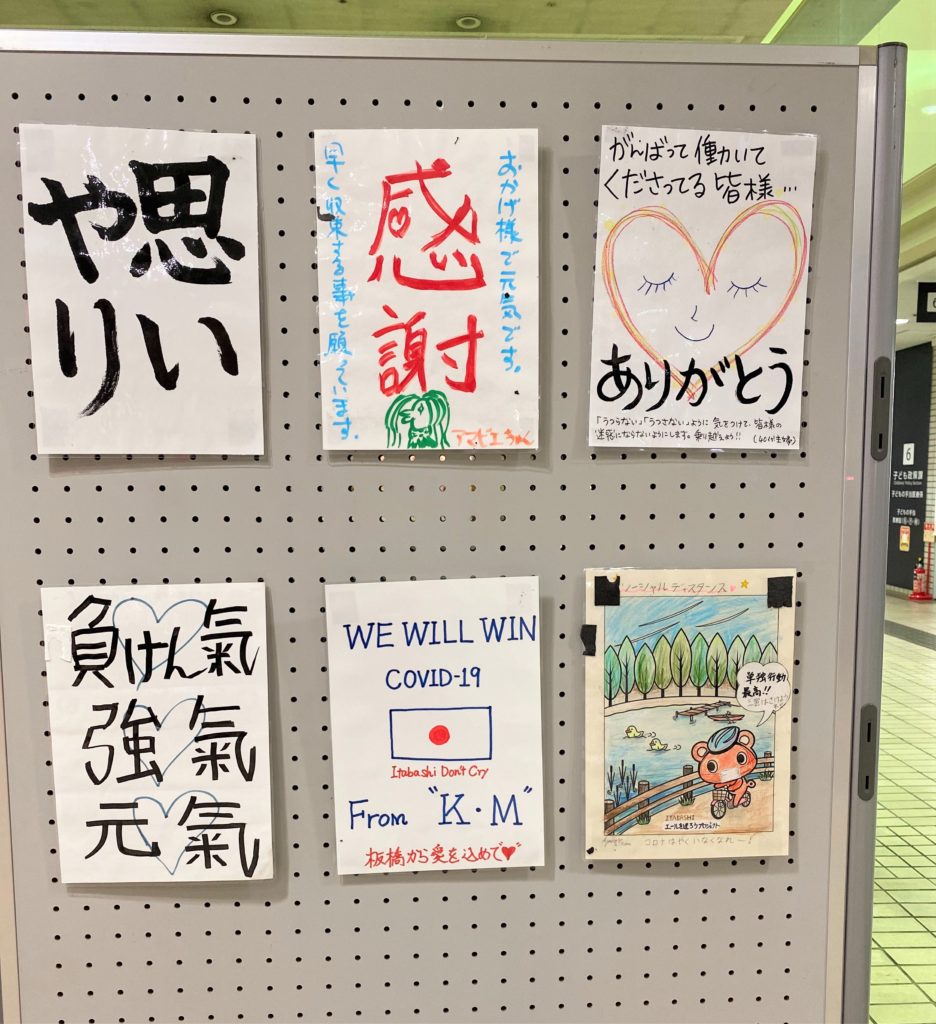 思い
やり
おかげ様で元気です。
感謝
早く収束する事を願っています。
アマビエちゃん
がんばって働いて
くださってる皆様…
ありがとう
「うつらない」「うつさない」ように気をつけて、皆様の
迷惑にならないようにします。乗り越えよう!!
(40代主婦)
負けん氣
強氣
元氣
WE WILL WIN
COVID-19
Itabashi Don't Cry
From "K・M"
板橋から愛を込めて♥
ソーシャルディスタンス
単独行動
最高!!
三密はさけよう
ITABASHI
エールを送ろうプロジェクト
コロナはやくいなくなれ〜!
6
子ども政策課
子どもの手当医療係
子どもの手当